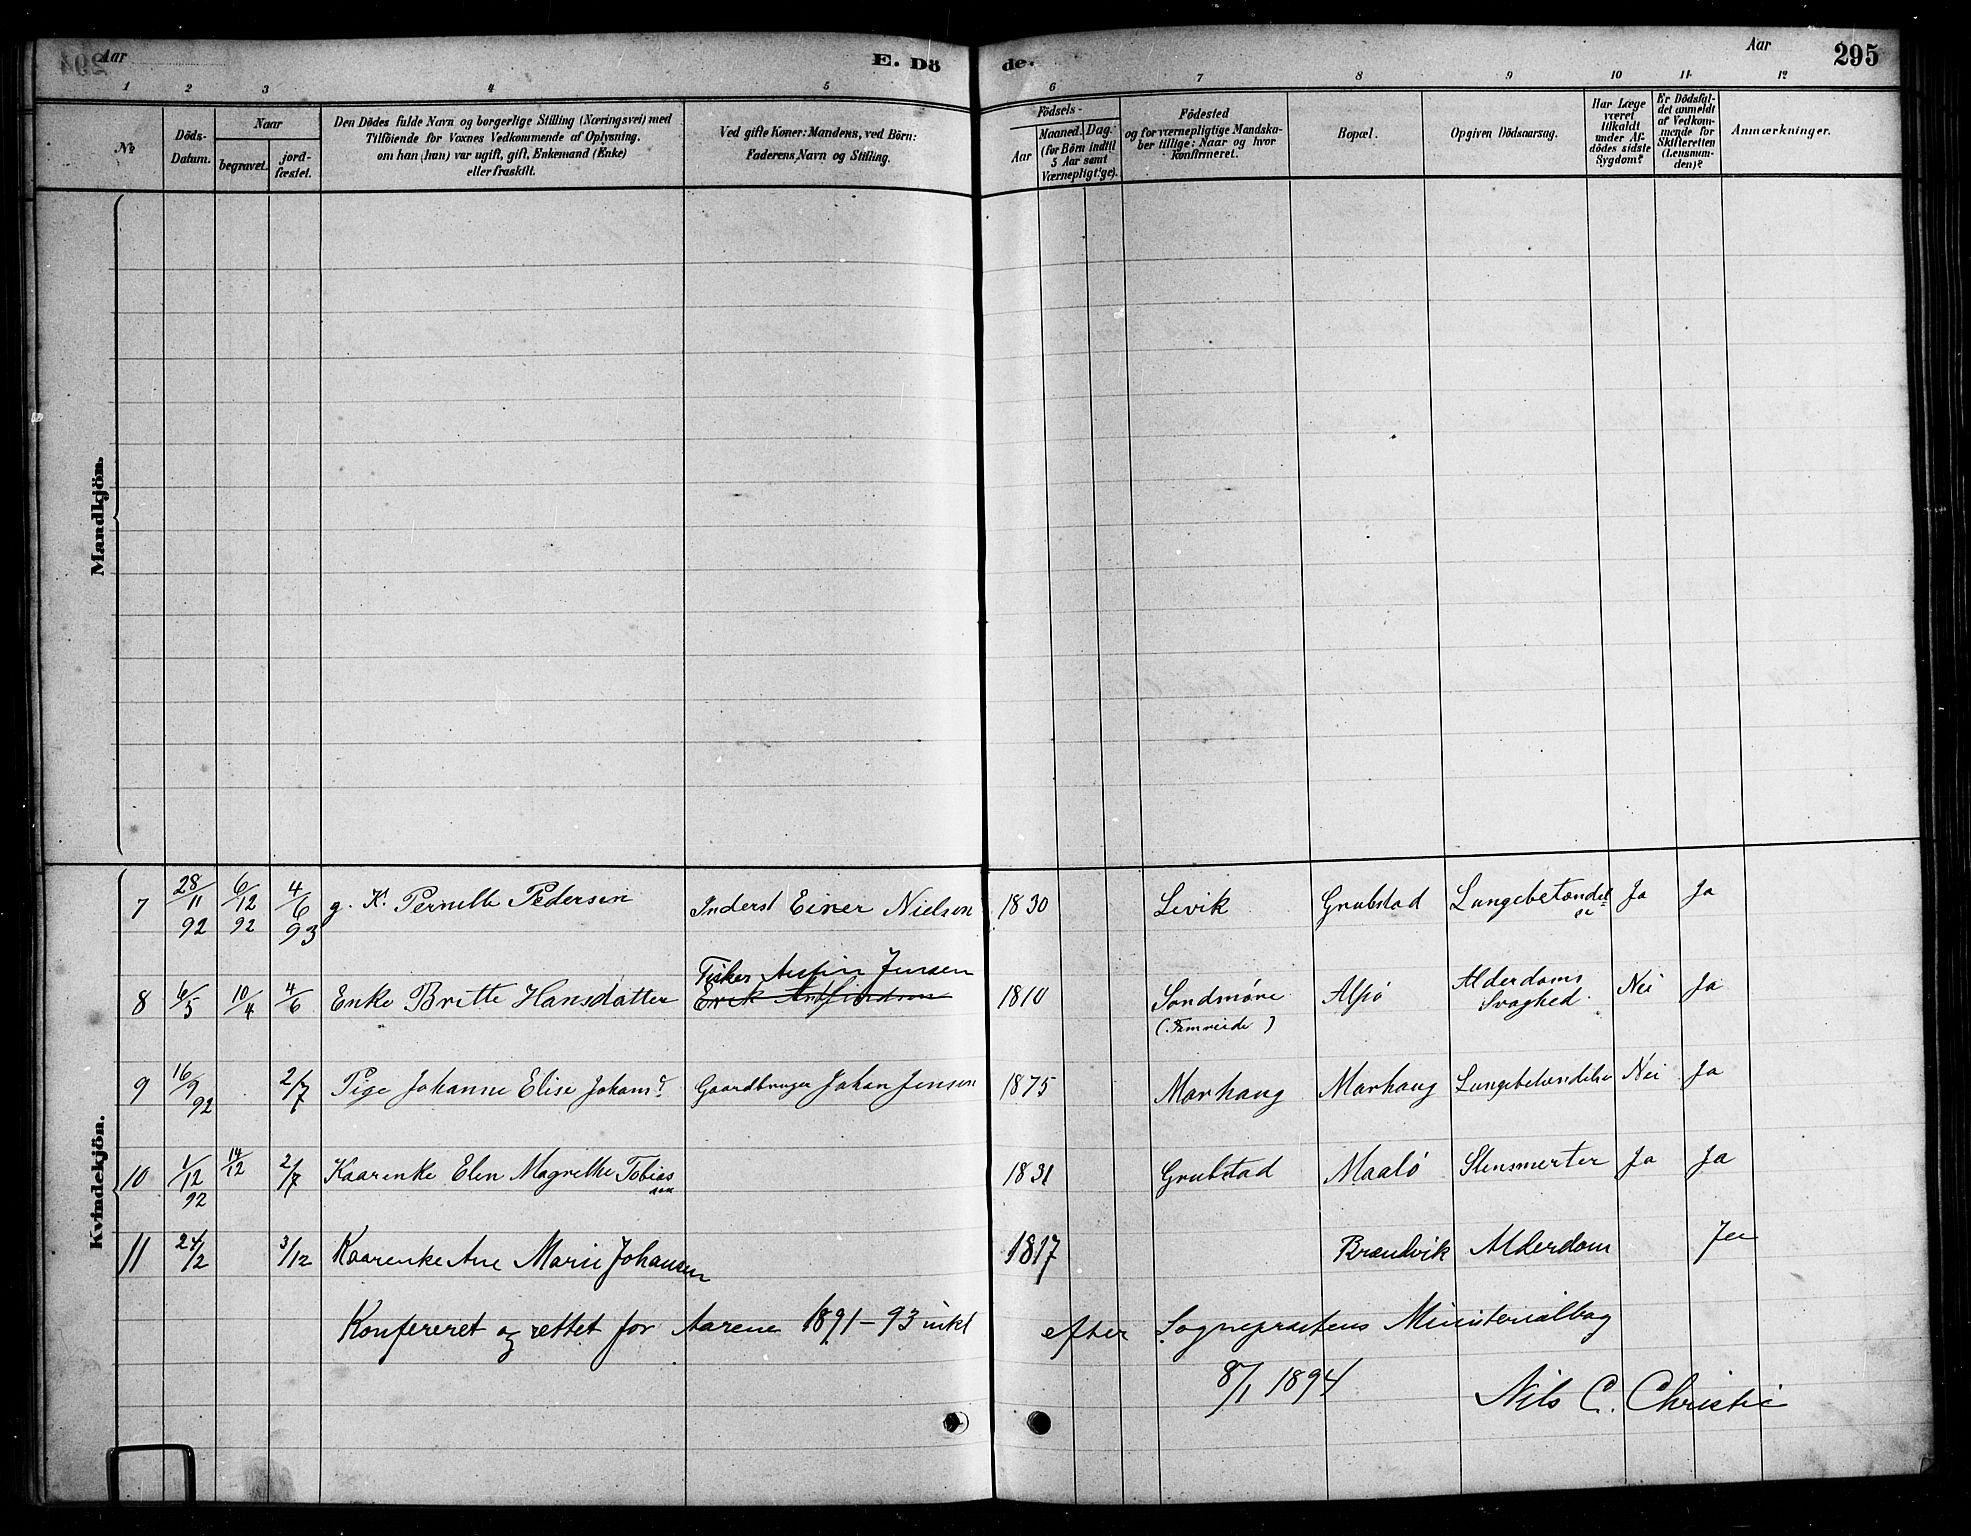 Aar
E. Dö de.
Aar
295
1 2 3 4 5 6 7 8 9 10 11 12
№
Döds-
Datum.
Naar
begravet.
jord-
fæstet.
Den Dödes fulde Navn og borgerlige Stilling (Næringsvei) med
Tilföiende for Voxnes Vedkommende af Oplysning,
om han (hun) var ugift, gift, Enkemand (Enke)
eller fraskilt.
Ved gifte Koner: Mandens, ved Börn:
Faderens Navn og Stilling.
Födsels-
Aar
Maaned. Dag.
(for Börn indtil
5 Aar samt
Værnepligtige).
Födested
og for værnepligtige Mandska-
ber tillige: Naar og hvor
konfirmeret.
Bopæl.
Opgiven Dödsaarsag.
Har Læge
været
tilkaldt
under Af-
dödes sidste
Sygdom?
Er Dödsfal-
det anmeldt
af Vedkom-
mende for
Skifteretten
(Lensman-
den)?
Anmærkninger.
Mandkjön.
Kvindekjön.
7 28/11 92 6/12 92 4/6 93 g. K. Pernille Pedersen Inderst Einer Nielsen 1830 Levik Grubstad Lungebetændelse Ja Ja
Fisker Austin Jensen
8 6/5 10/4 4/6 Enke Britte Hansdatter Erik 1810 Söndmöre Alsö Alderdoms Svaghed. Nei Ja
9 16/9 92 2/7 Pige Johanne Elise Johansd. Gaardbruger Johan Jensen 1875 Marhaug Marhaug Lungebetændelse Nei Ja
10 1/12 92 14/12 2/7 Kaarenke Elen Magrethe Tobiassen 1831 Grubstad Maalö Stensmerter Ja Ja
11 24/2 3/12 Kaarenke Ane Marie Johansen 1817 Brændvik Alderdom Ja
Konfereret og rettet for Aarene 1891-93 inkl efter Sogneprestens Ministerialbog
8/1 1894
Nils C. Christie